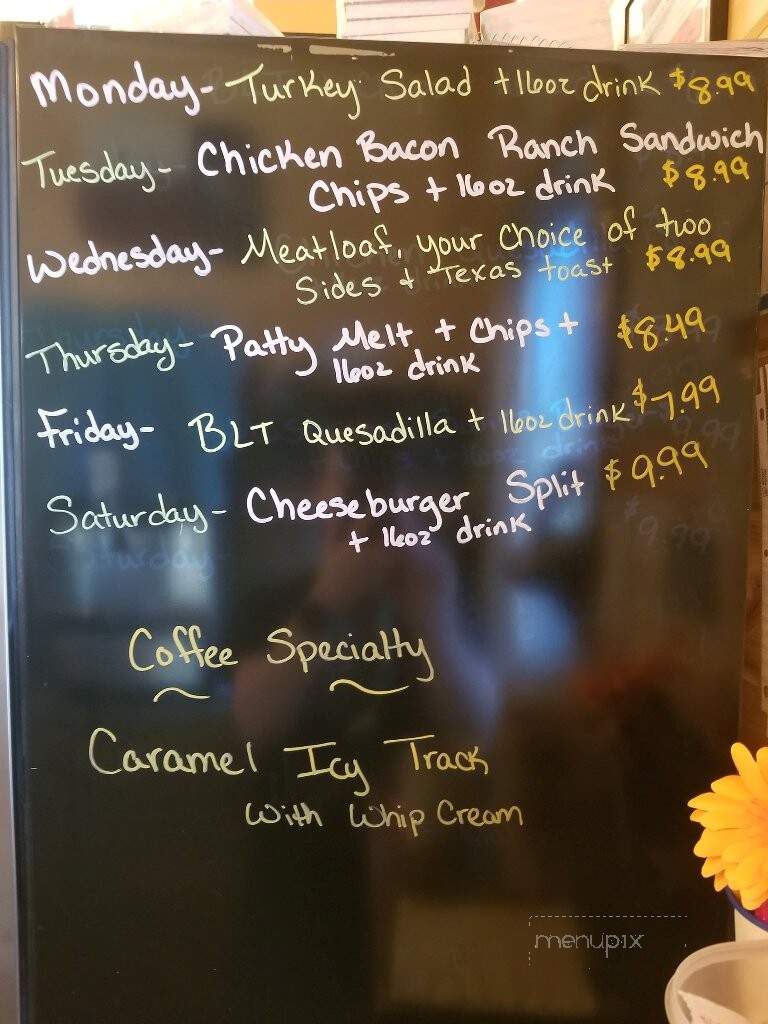 Monday- Turkey Salad + 16oz drink $8.99
Tuesday- Chicken Bacon Ranch Sandwich
Chips + 16oz drink $8.99
Wednesday- Meatloaf, your choice of two
Sides + Texas toast $8.99
Thursday- Patty Melt + Chips + $8.49
16oz drink
Friday- BLT Quesadilla + 16oz drink $7.99
Saturday- Cheeseburger Split $9.99
+ 16oz drink
Coffee Specialty
Caramel Icy Track
With Whip Cream
menupix